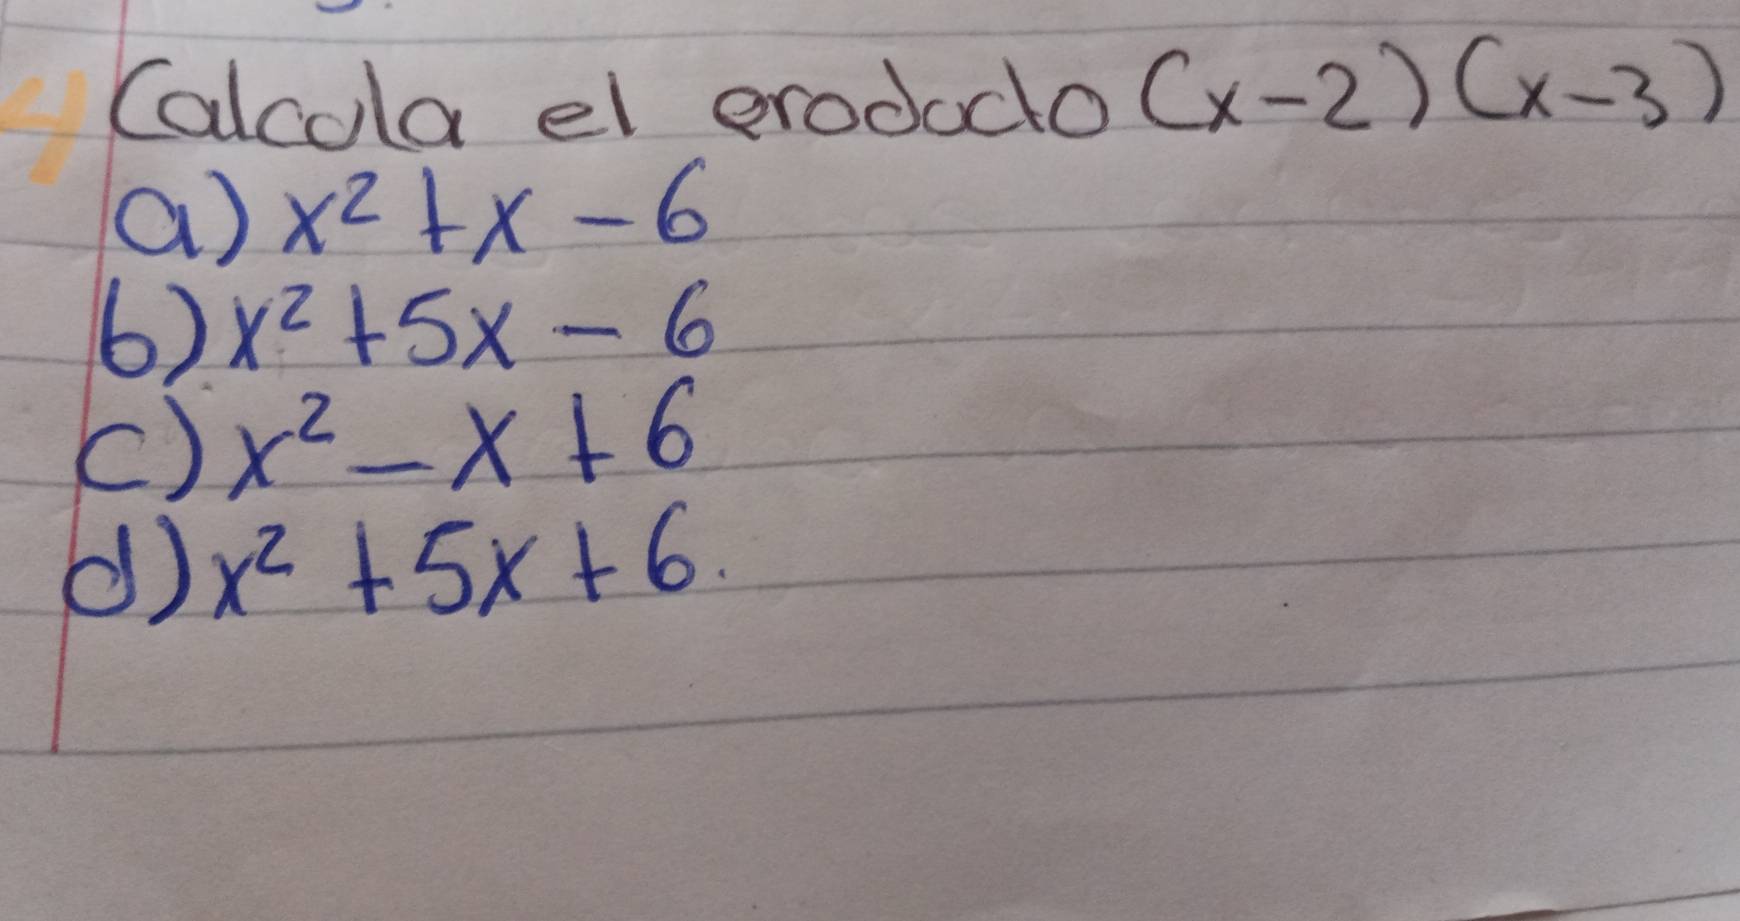 4 Calcula el producto (x-2)(x-3)
a) x² + x - 6
b) x² + 5x - 6
c) x² - x + 6
d) x² + 5x + 6.